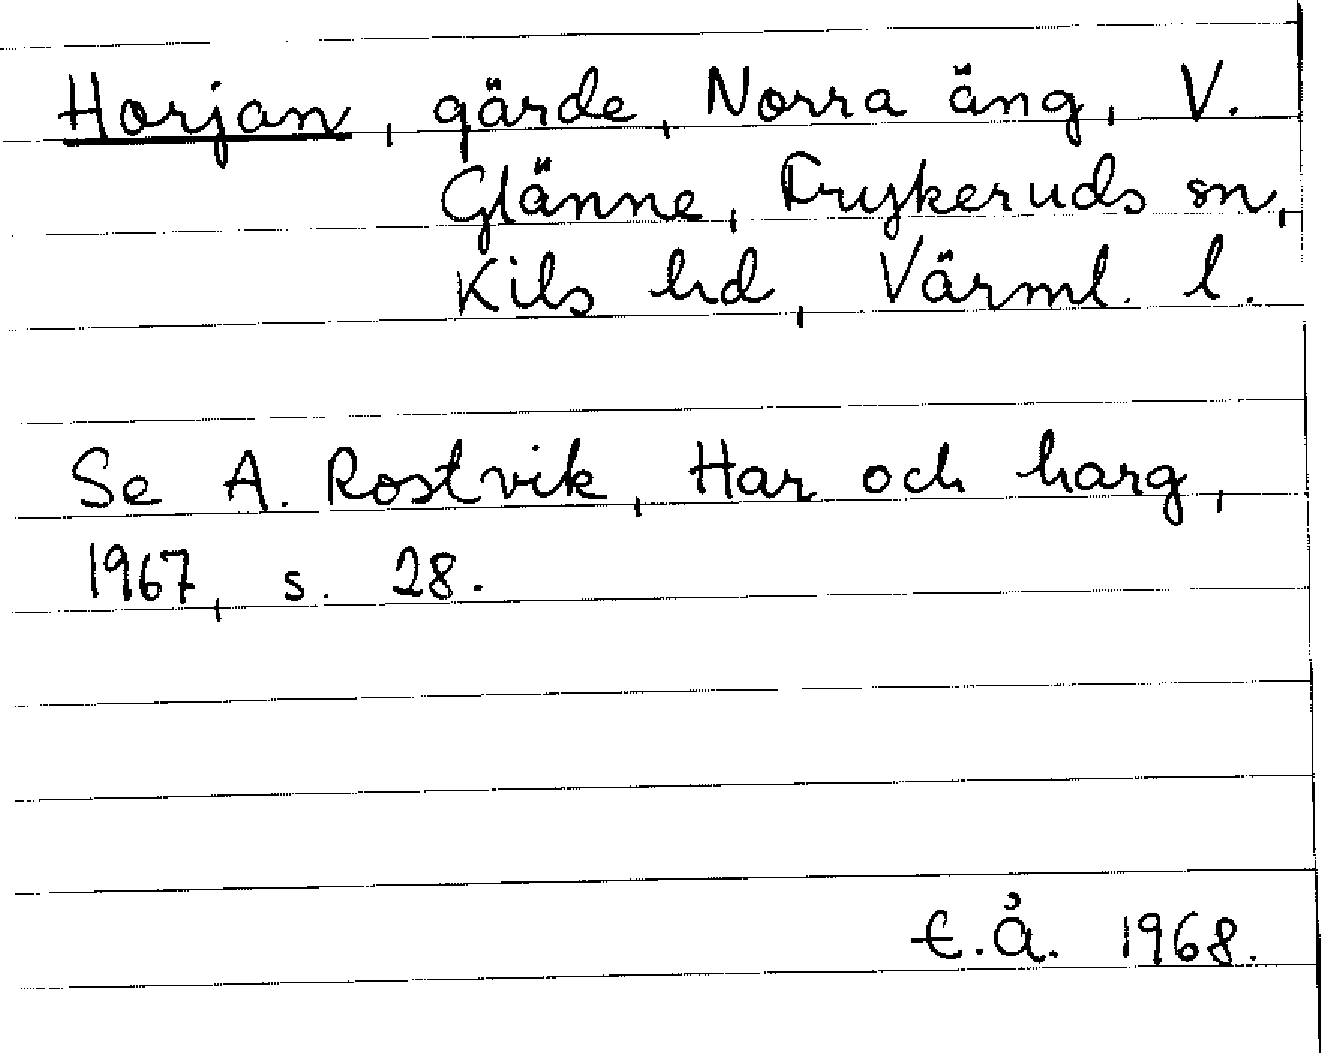 Horjan, gärde, Norra äng, V.
Glänne, Frykeruds sn,
Kils hd, Värml. l.
Se A. Rostvik, Har och harg,
1967, s. 28.
E.Å. 1968.